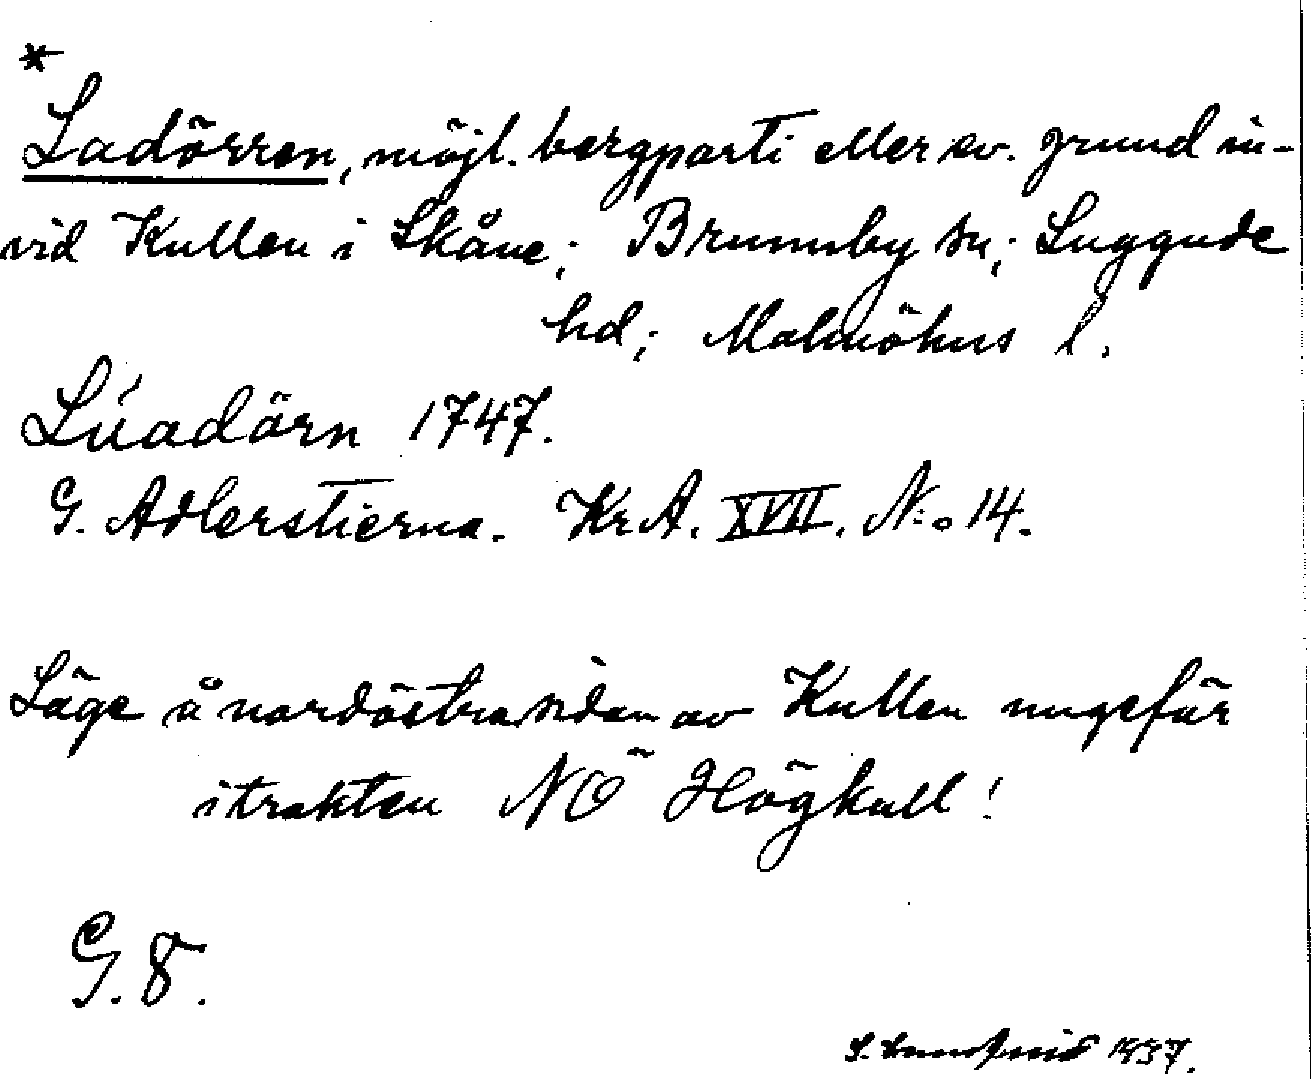 *
Ladörren, möjl. bergparti eller ev. grund in-
vid Kullen i Skåne; Brunnby sn; Luggude
hd; Malmöhus l.
Lúadörn 1747.
G. Adlerstierna. KrA. XVII. N:o 14.
Läge å nordöstra sidan av Kullen ungefär
i trakten NÖ Högkull!
G. 8.
1937.